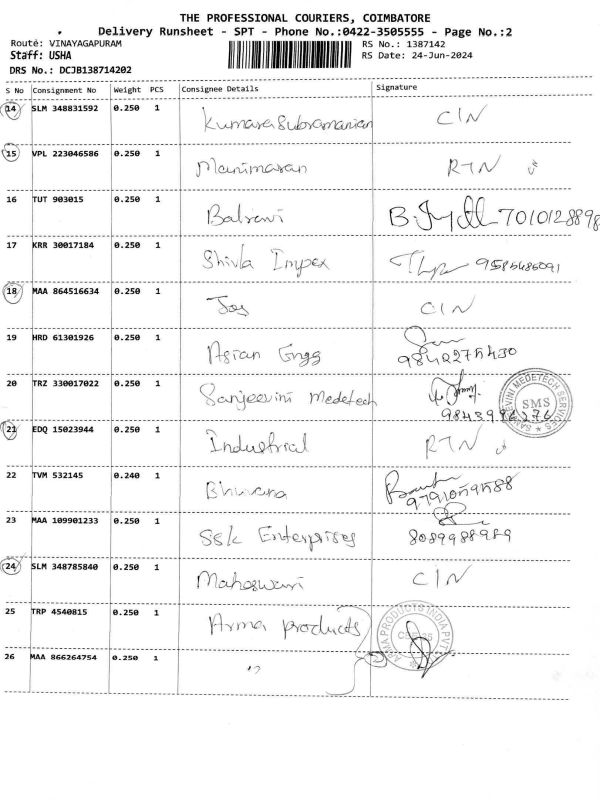 THE PROFESSIONAL COURIERS, COIMBATORE
Delivery Runsheet - SPT - Phone No.:0422-3505555 - Page No.:2
Route: VINAYAGAPURAM RS No.: 1387142
Staff: USHA RS Date: 24-Jun-2024
DRS No.: DCJB138714202
S No Consignment No Weight PCS Consignee Details Signature
14 SLM 348831592 0.250 1 Kumarasubramanian CIN
15 VPL 223046586 0.250 1 Manimaran RTN
16 TUT 903015 0.250 1 7010128898
17 KRR 30017184 0.250 1 Shivla Impex
18 MAA 864516634 0.250 1 Joy CIN
19 HRD 61301926 0.250 1 Asian Engg
9842275430
20 TRZ 330017022 0.250 1 Sanjeevini Medetech
SANJEEVINI MEDETECH SERVICES
SMS
21 EDQ 15023944 0.250 1 Industrial RTN
22 TVM 532145 0.240 1 Bhuvana
23 MAA 109901233 0.250 1 SSK Enterprises
8089988989
24 SLM 348785840 0.250 1 Maheswari CIN
25 TRP 4540815 0.250 1 Arma Products
ARMA PRODUCTS INDIA PVT
26 MAA 866264754 0.250 1 "